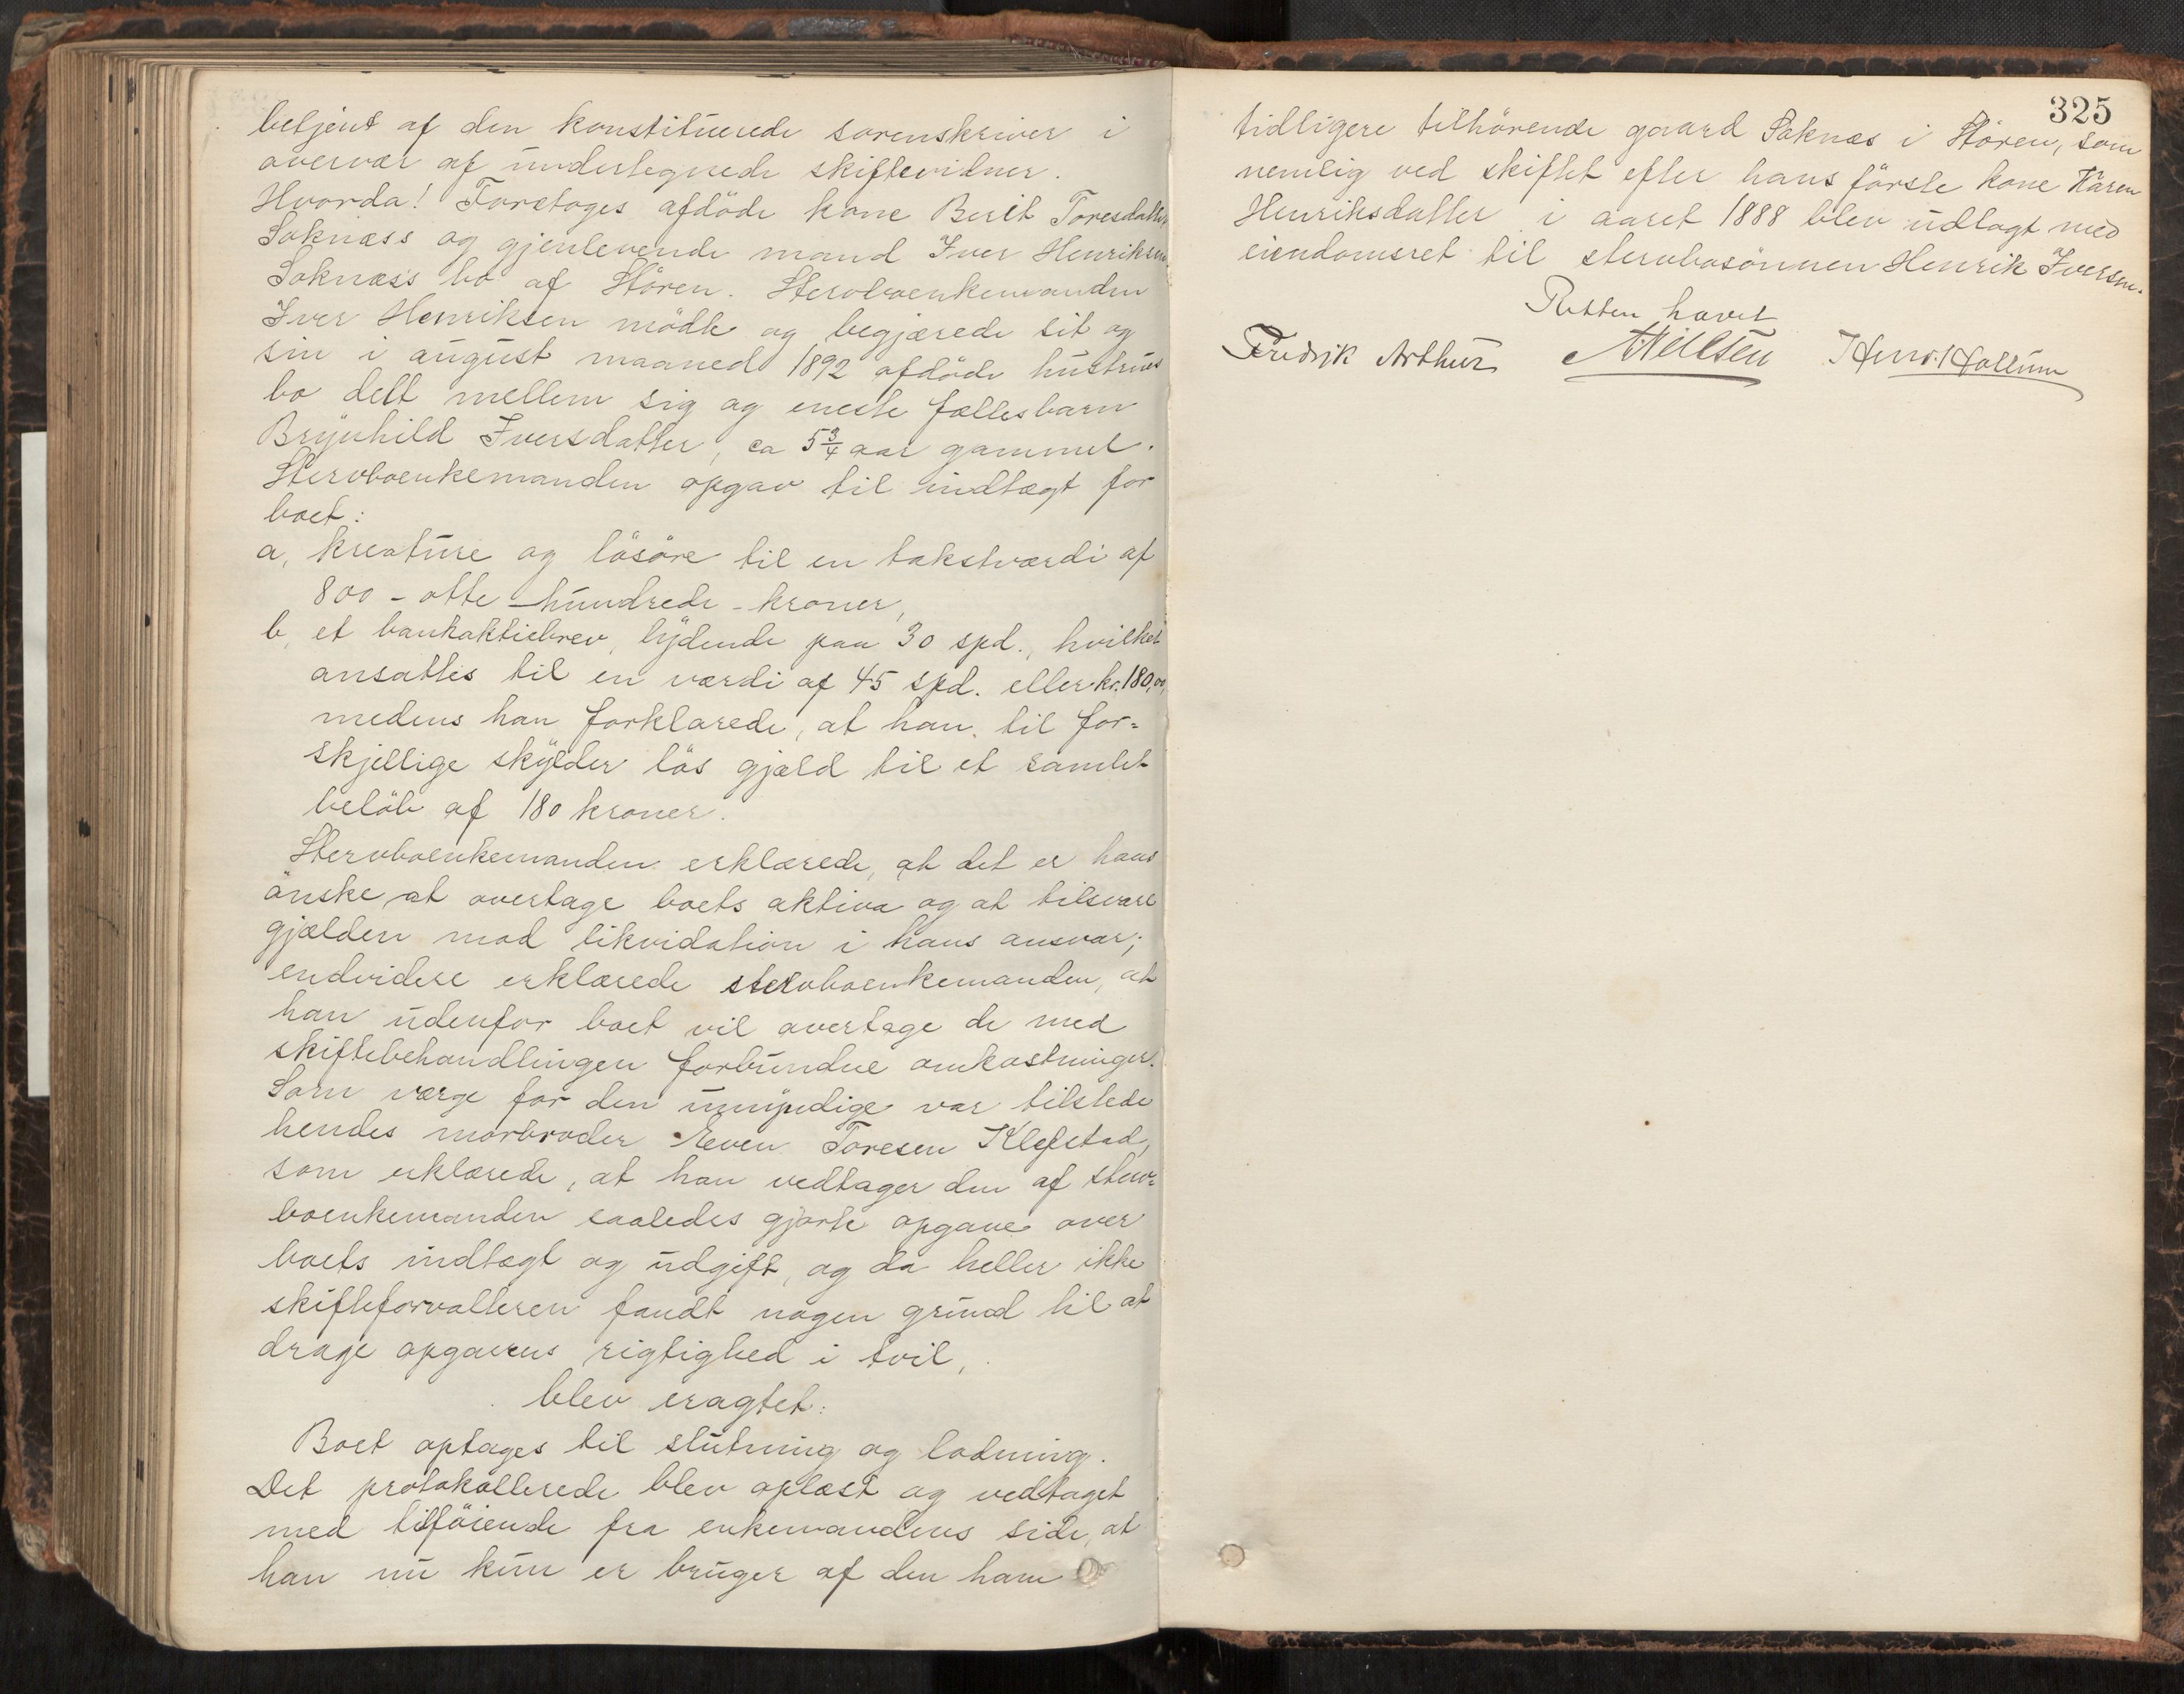 betjent af den konstituerede sorenskriver i
overvær af undertegnede skiftevidner.
Hvorda! Foretoges afdöde kone Berit Toresdatter
Soknæss og gjenlevende mand Iver Henriksen
Soknæss bo af Stören. Stervboenkemanden
Iver Henriksen mödte og begjærede sit og
sin i august maaned 1892 afdöde hustrues
bo delt mellem sig og eneste fællesbarn
Brynhild Iversdatter, ca 5 3/4 aar gammel.
Stervboenkemanden opgav til indtægt for
boet:
a, kreature og lösöre til en takstværdi af
800 - otte - hundrede - kroner,
b, et bankaktiebrev, lydende paa 30 spd., hvilket
ansattes til en værdi af 45 spd. eller kr. 180,00,
medens han forklarede, at han til for=
skjellige skylder lös gjæld til et samlet
belöb af 180 kroner.
Stervboenkemanden erklærede, at det er hans
önske at overtage boets aktiva og at tilsvare
gjælden mod likvidation i hans ansvar;
endvidere erklærede stervboenkemanden, at
han udenfor boet vil overtage de med
skiftebehandlingen forbundne omkostninger.
Som værge for den umyndige var tilstede
hendes morbroder Even Toresen Klefstad,
som erklærede, at han vedtager den af sterv=
boenkemanden saaledes gjorte opgave over
boets indtægt og udgift, og da heller ikke
skifteforvalteren fandt nogen grund til at
drage opgavens rigtighed i tvil,
blev eragtet:
Boet optages til slutning og lodning.
Det protokollerede blev oplæst og vedtaget
med tilföiende fra enkemandens side, at
han nu kun er bruger af den ham
325
tidligere tilhörende gaard Soknæs i Stören, som
nemlig ved skiftet efter hans förste kone Karen
Henriksdatter i aaret 1888 blev udlagt med
eiendomsret til stervbosönnen Henrik Iversen.
Retten hævet
Fredrik Arthur Nielsen Hallum